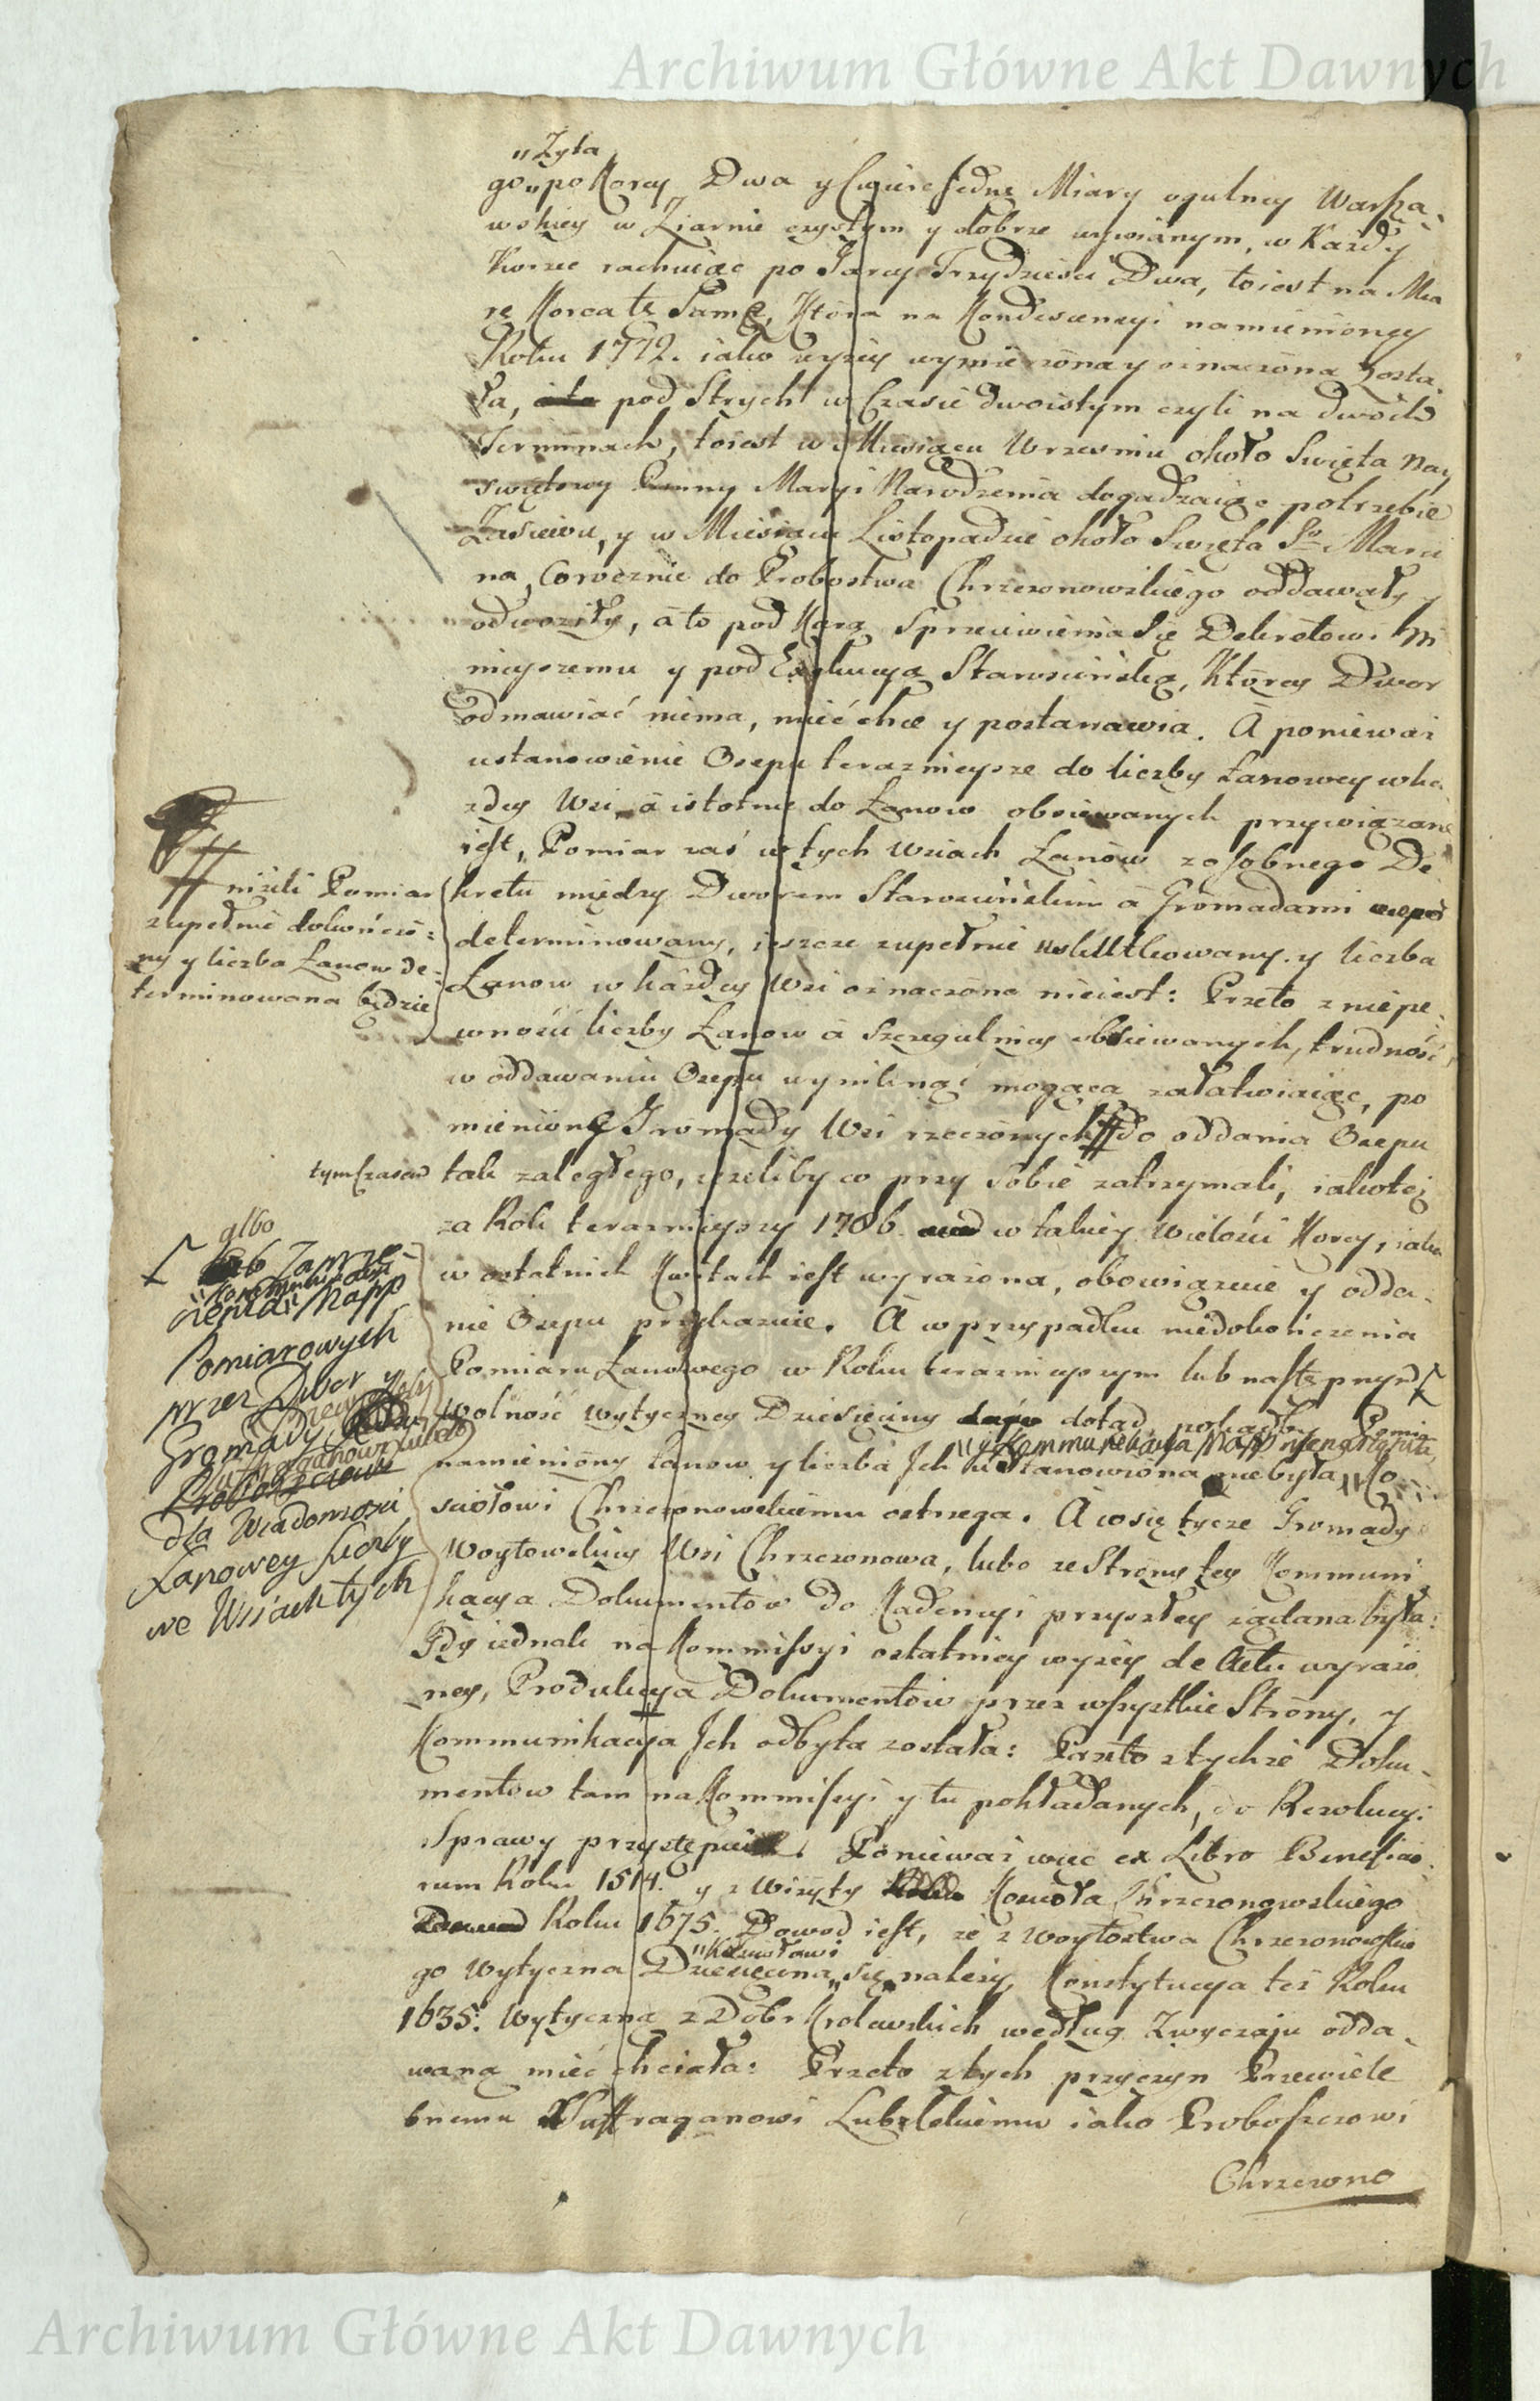 Archiwum Główne Akt Dawnych
"Zyta
go" po Korcy Dwa y Cwierc Jedne Miary ogulney Warsza-
wskiey w Ziarnie czystym y dobrze wywianym, w Kazdy
Korzec rachuiąc po Garcy Trzydzieści Dwa, toiest na Mia
rę Korca tę Samę, Ktora na Kondescencyi namienioney
Roku 1772. iako wyzey wymierzona y oznaczona zosta
ła, pod Strych w Czasie dwoistym czyli na dwóch
Terminach, toiest w Miesiącu Wrzesniu około Swięta Nay
swiętszey Panny Maryi Narodzenia dogadzaiąc potrzebie
Zasiewu, y w Miesiącu Listopadzie około Swięta S° Marci
na, Corocznie do Probostwa Chrzczonowskiego oddawały y
odwoziły, á to pod Karą Sprzeciwienia Się Dekretowi ni
nieyszemu y pod Exekucyą Starościńską, Ktorey Dwor
odmawiać niema, mieć chce y postanawia. A poniewaz
ustanowienie Osepu terazniejsze do liczby Łanowey w ka
zdey Wsi, á istotnie do Łanow obsiewanych przywiązane
iest, Pomiar zaś w tych Wsiach Łanów z osobnego De
kretu między Dworem Starościńskim á Gromadami
determinowany, ieszcze zupełnie nieskutkowany. y liczba
Łanow w każdey Wsi oznaczona nieiest: Przeto z niepe-
wności liczby Łanow á szczegulniey obsiewanych, trudność
w oddawaniu Osepu wyniknąć mogącą załatwiaiąc, po
mienione Gromady Wsi rzeczonych # do oddania Osepu
tym Czasem tak zaległego, iezeliby co przy Sobie zatrzymali, iakotez
za Rok terazniejszy 1786. w takiey Wielości Korcy, iaka
w ostatnich Kwitach iest wyrażona, obowiązuie y odda-
nie Osepu przykazuie. A w przypadku niedokończenia
Pomiaru Łanowego w Roku terazniejszym lub następnym
wolność wytyczney Dziesięciny dotąd, pokądby Pomia
"y Kommunikacya Mapp
namieniony Łanow y liczba Jch ustanowiona niebyła" Ko
sciołowi Chrzczonowskiemu ostrzega. A co się tycze Gromady
Woytowskiey Wsi Chrzczonowa, lubo ze Strony tey Kommuni
kacya Dokumentow do Kadencyi przyszłey ządana była:
Gdy iednak na Kommissyi ostatniey wyżey de Actu wyrażo
ney, Produkcya Dokumentow przez wszystkie Strony, y
Kommunikacya Jch odbyta została: Przeto z tychże Doku-
mentow tam na Kommissyi y tu pokładanych, do Rezolucyi
Sprawy przystępuie. Poniewaz więc ex Libro Beneficio-
rum Roku 1514. y z Wizyty Koscioła Chrzczonowskiego
Roku 1675. Dowod iest, ze z Woytostwa Chrzczonowskie
"Kosciołowi
go Wytyczna Dziesięcina" się należy, Konstytucya tez Roku
1635. Wytyczną z Dóbr Krolewskich według Zwyczaju odda-
waną mieć chciała: Przeto z tych przyczyn Przewiele
bnemu Suffraganowi Lubelskiemu iako Proboszczowi
Chrzczono
# niżeli Pomiar
zupełnie dokończo-
ny y liczba Łanow de-
terminowana będzie
albo
Kommunikacyi
Mapp
Pomiarowych
przez Dwor y
Gromady
dla Wiadomości
Łanowey Liczby
we Wsiach tych
Archiwum Główne Akt Dawnych